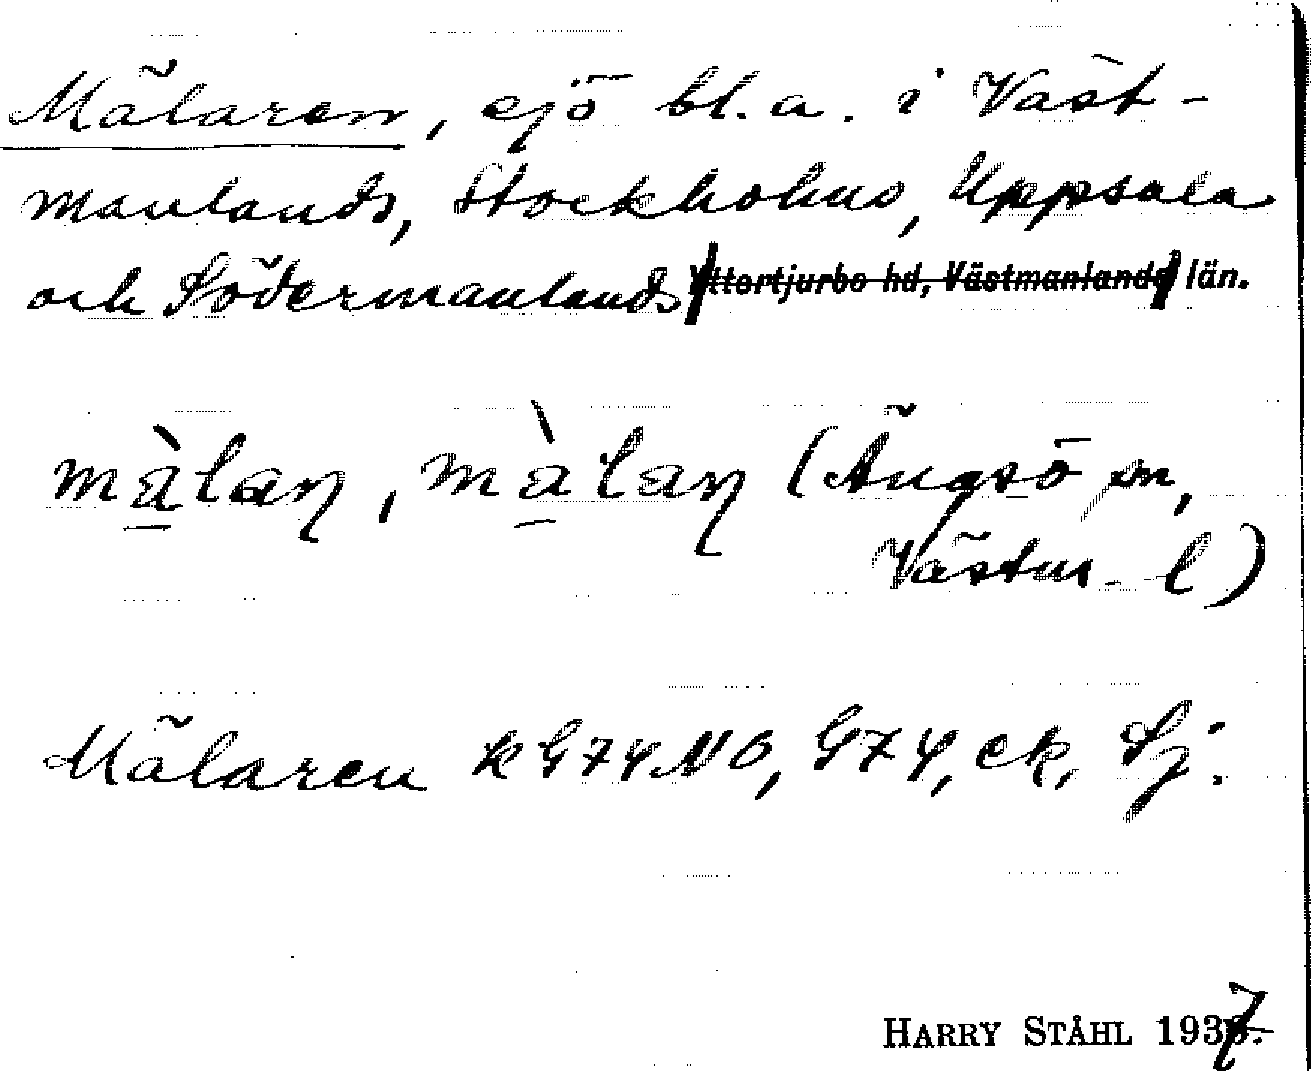 Mälaren, sjö bl.a. i Väst-
manlands, Stockholms, Uppsala
och Södermanlands Yttertjurbo hd, Västmanlands län.
màlaŋ, mà̱laŋ (Ängsö sn,
Västm. l)
Mälaren k G74NO, G74, ek, Sj.
HARRY STÅHL 1937